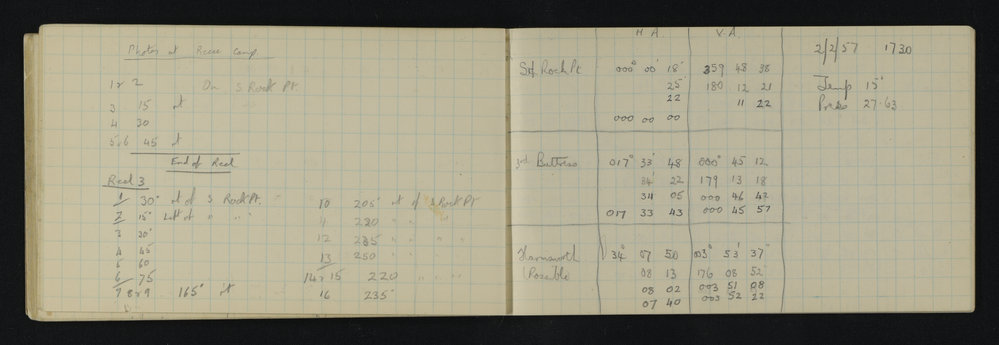 Photos at Recce Camp
1 & 2 On S Rock Pt.
3 15 rt
4 30
5 & 6 45 rt
End of Reel
Reel 3
1 30° rt of S Rock Pt.
2 15° Left of " "
3 30°
4 45
5 60
6 75
7 8 & 9 165° rt
10 205° rt of S Rock Pt
220 " " "
12 235 " " "
13 250
14 & 15 220 " " "
16 235°
H A. V A.
Sth Rock Pt 000° 00' 18" 359 48 38
25 180 12 21
22 11 22
000 00 00
3rd Buttress 017° 33' 48 000° 45 12
34' 22 179 13 18
34 05 000 46 42
017 33 43 000 45 57
Harmsworth 34° 07 50 003° 53' 37"
Possible 08 13 176 08 52
08 02 003 51 08
07 40 003 52 22
2/2/57 1730
Temp 15°
Press 27.63